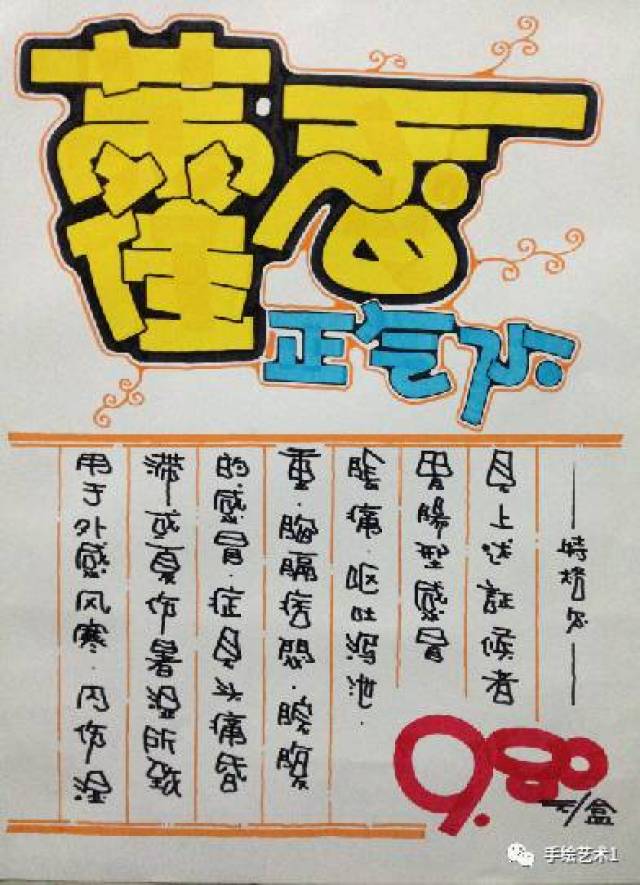 藿香
正气水
用于外感风寒.内伤湿
滞或夏伤暑湿所致
的感冒.症见头痛昏
重.胸膈痞闷.脘腹
胀痛.呕吐泻泄.
胃腸型感冒
见上述証候者
——特格尔——
9.80
元/盒
手绘艺术1